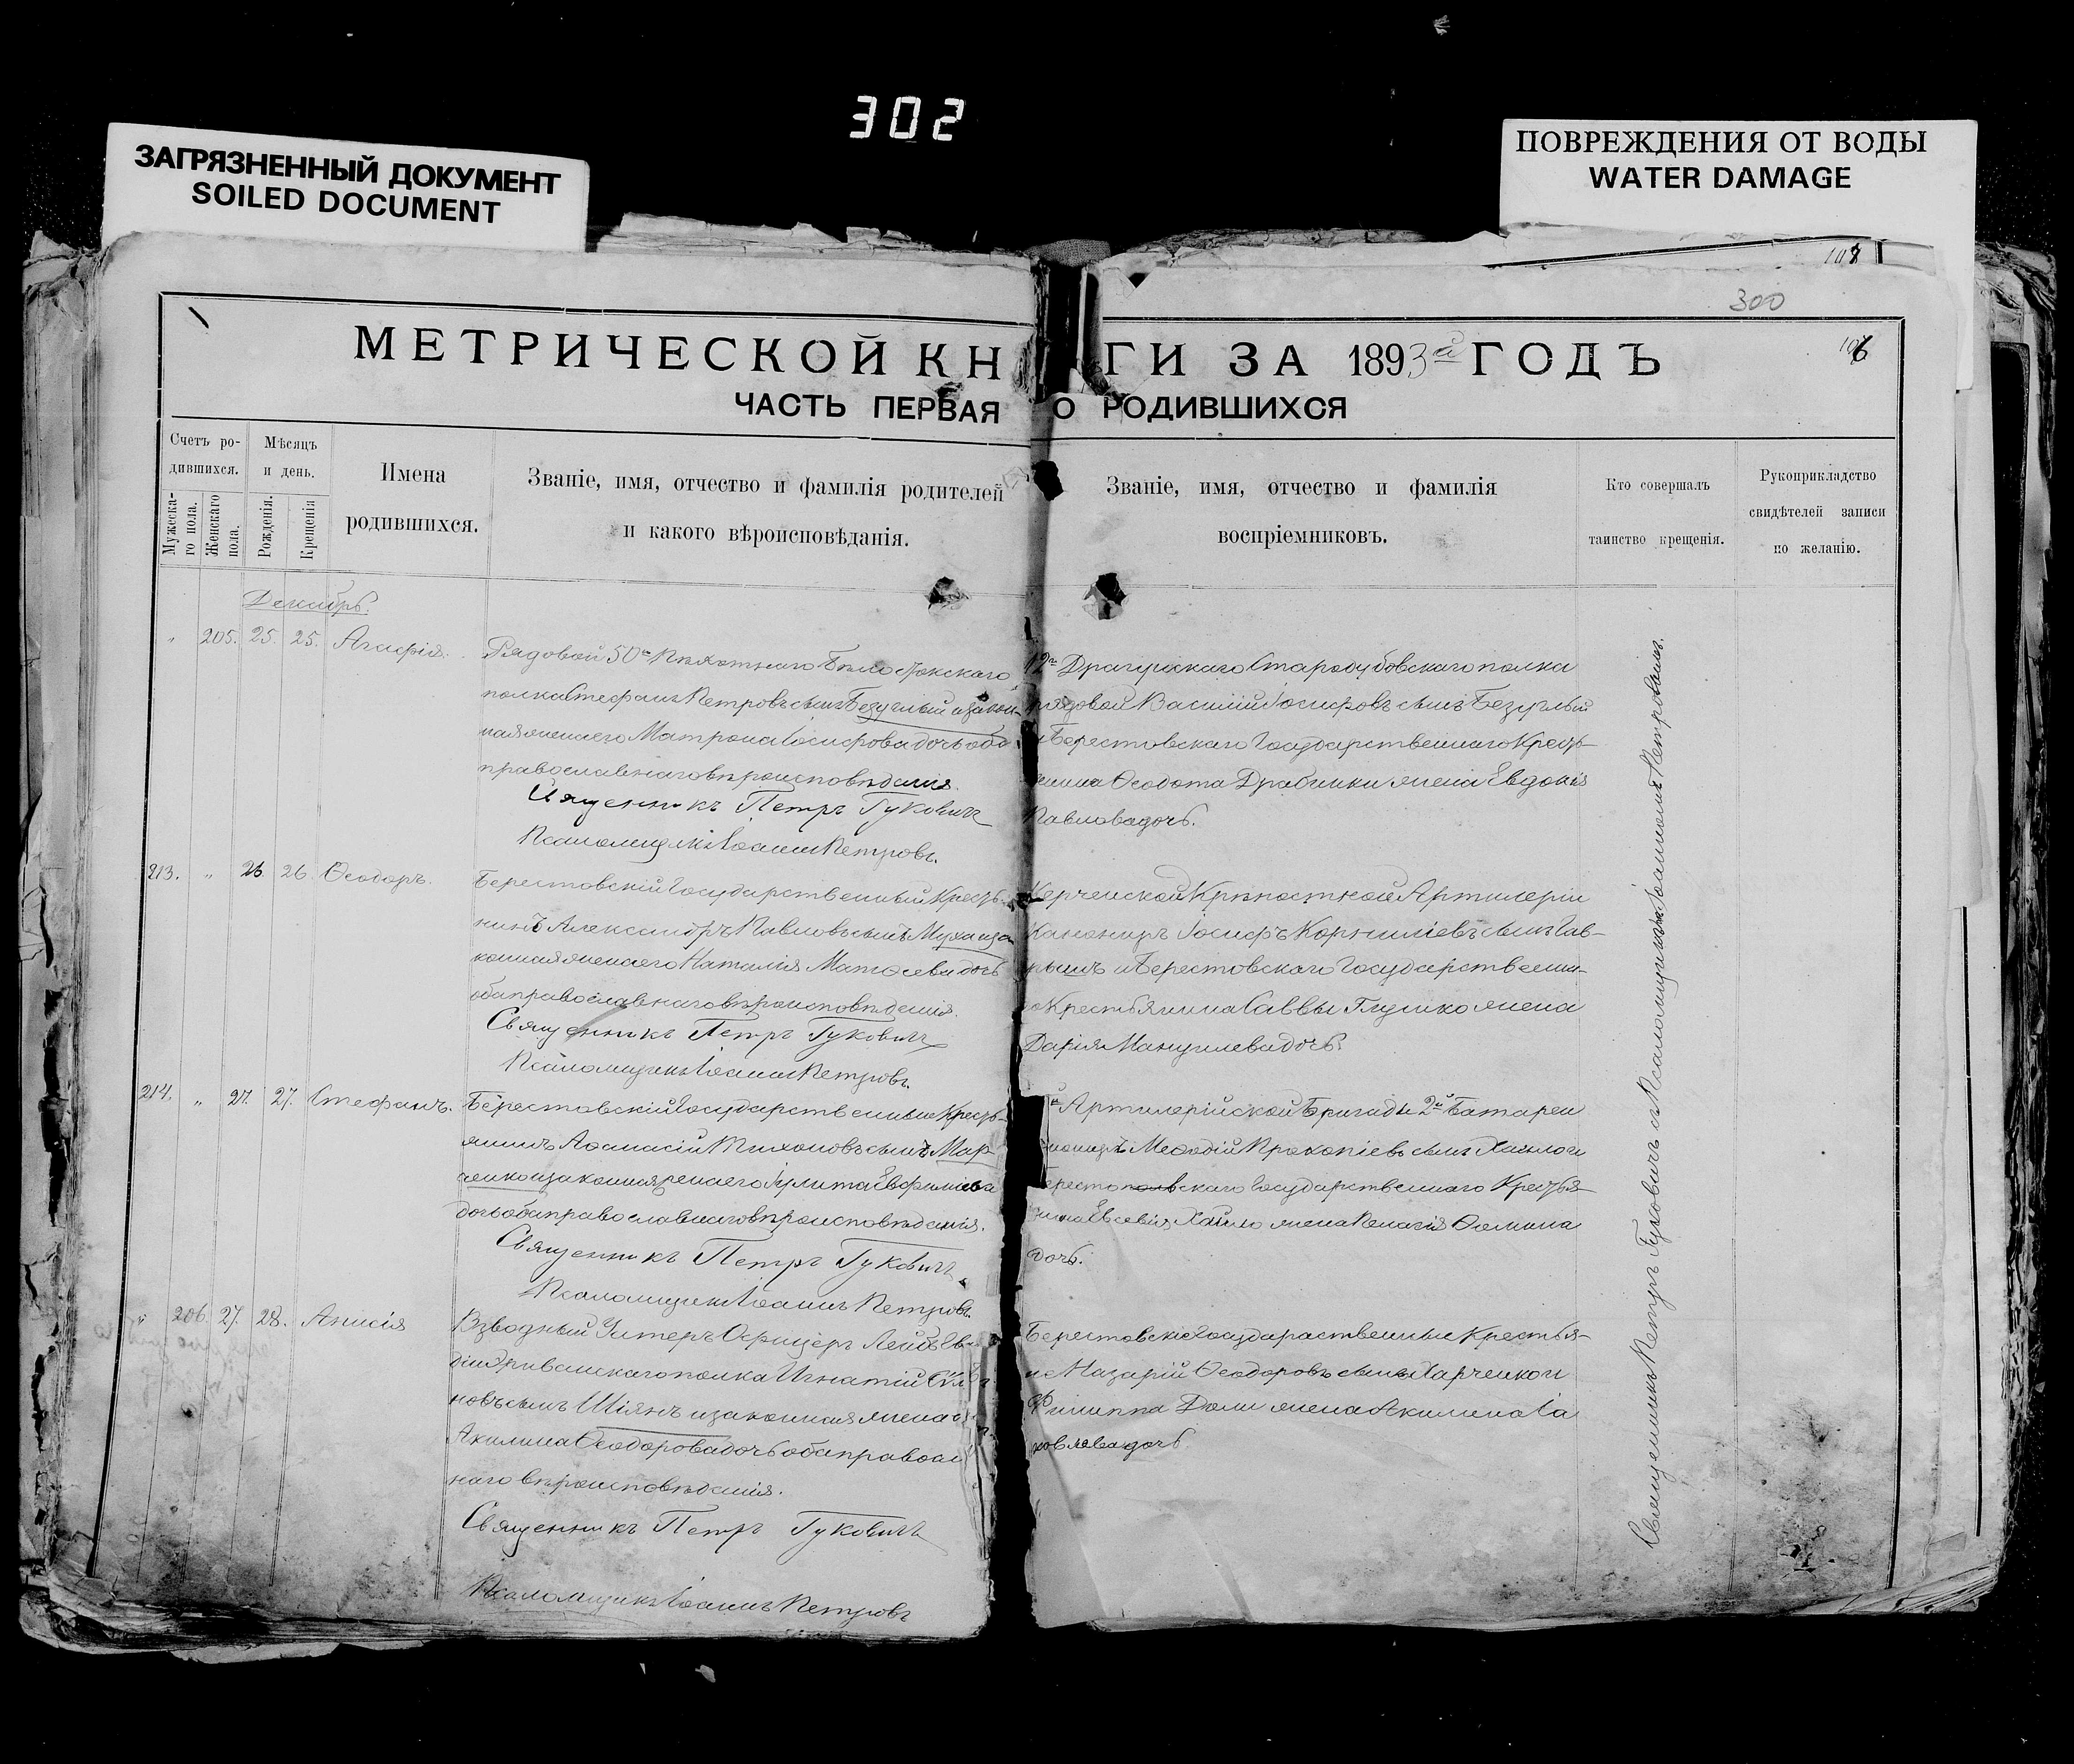 302
ЗАГРЯЗНЕННЫЙ ДОКУМЕНТ
SOILED DOCUMENT
ПОВРЕЖДЕНИЯ ОТ ВОДЫ
WATER DAMAGE
300
МЕТРИЧЕСКОЙ КН ГИ ЗА 1893й ГОДЪ
ЧАСТЬ ПЕРВАЯ О РОДИВШИХСЯ
Счетъ ро-
дившихся.
Мужеска-
го пола.
Женскаго
пола.
Мѣсяцъ
и день.
Рожденія.
Крещенія
Имена
родившихся.
Званіе, имя, отчество и фамилія родителей
и какого вѣроисповѣданія.
Званіе, имя, отчество и фамилія
воспріемниковъ.
Кто совершалъ
таинство крещенія.
Рукоприкладство
свидѣтелей записи
по желанію.
Декабрь.
" 205. 25. 25. Агафія.
Рядовой 50го Пѣхотнаго Бѣлостокскаго
полка Стефанъ Петровъ сынъ Безуглый и закон-
ная жена его Матрона Іосифова дочь оба
православнаго вѣроисповѣданія.
Священникъ Петръ Гуковичъ
Псаломщикъ Іоаннъ Петровъ.
12го Драгунскаго Стародубовскаго полка
рядовой Василій Іосифовъ сынъ Безуглый
и Берестовскаго Государственнаго Кресть-
янина Ѳеодота Драбинки жена Евдокія
Павлова дочь.
213. " 26. 26. Ѳеодоръ.
Берестовскій Государственный Кресть-
нинъ Александръ Павловъ сынъ Муха и за-
конная жена его Наталія Матѳеева дочь
оба православнаго вѣроисповѣданія.
Священникъ Петръ Гуковичъ
Псаломщикъ Іоаннъ Петровъ.
Керченской Крѣпостной Артилеріи
Канониръ Іосифъ Корниліевъ сынъ Гав-
рышъ и Берестовскаго Государственна-
Крестьянина Саввы Глушко жена
Дарія Мануилева дочь.
214. " 27. 27. Стефанъ.
Берестовскій Государственный Кресть-
янинъ Аѳанасій Тихоновъ сынъ Мар-
ченко и законная жена его Іулита Евфиміева
дочь оба православнаго вѣроисповѣданія.
Священникъ Петръ Гуковичъ
Псаломщикъ Іоаннъ Петровъ.
й Артилерійской Бригады 2й Батареи
Меѳодій Прокопіевъ сынъ Хайло и
скаго Государственнаго Крестья-
нина Евсевія Хайло жена Пелагія Ѳомина
дочь.
" 206. 27. 28. Анисія
Взводный Унтеръ Офицеръ Лейбъ
Эриванскаго полка Игнатій
новъ сынъ Шіянъ и законная жена
Акилина Ѳеодорова дочь оба правосл
наго вѣроисповѣданія.
Священникъ Петръ Гуковичъ
Псаломщикъ Іоаннъ Петровъ
Берестовскіе Государственные Крестья-
не Назарій Ѳеодоровъ сынъ Харченко и
Филиппа Доли жена Акилина Іа
ковлева дочь
Священникъ Петръ Гуковичъ съ Псаломщикомъ Іоанномъ Петровымъ.